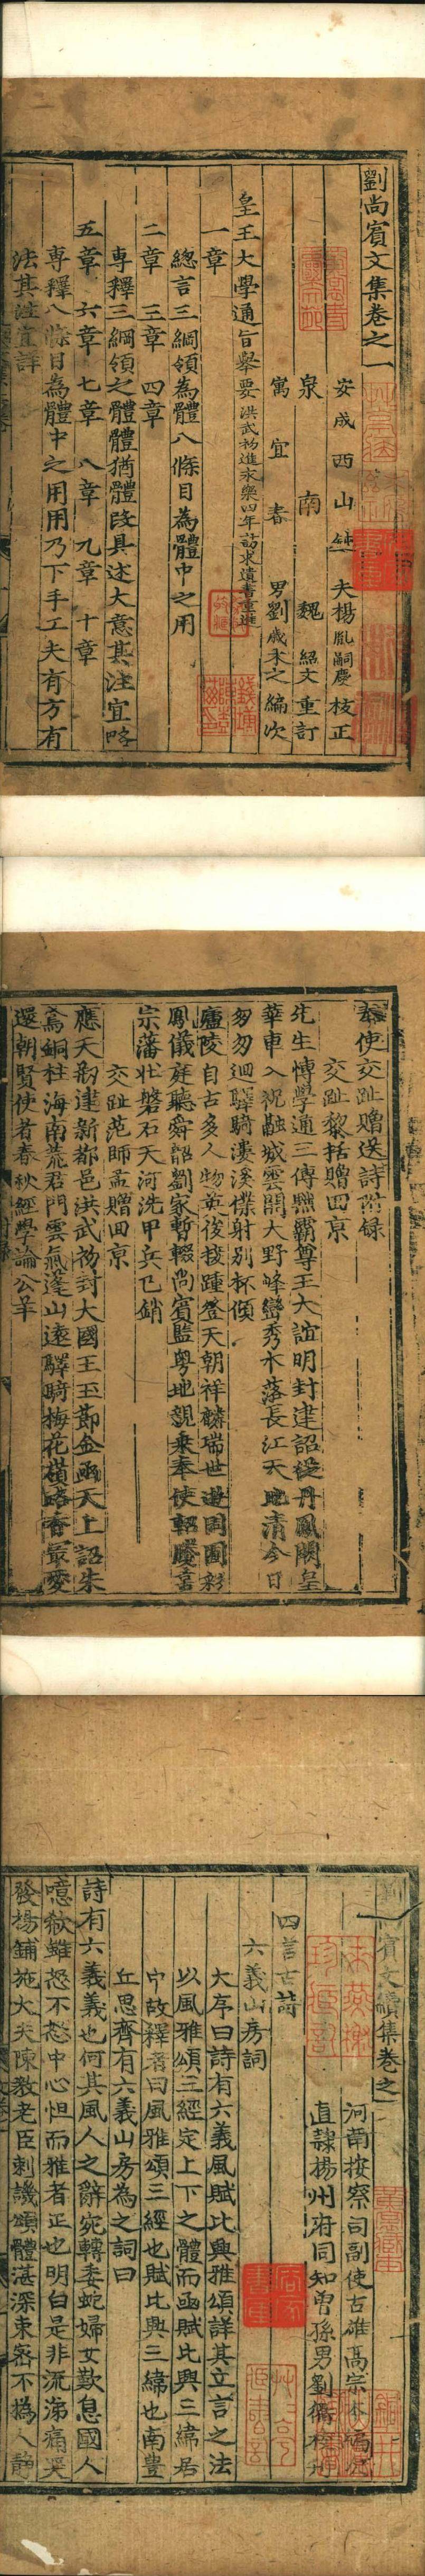 劉尚賓文集卷之一
安成西山 夫楊胤嗣慶校正
泉南魏紹文重訂
寓宜春男劉歲禾之編次
皇王大學通旨舉要洪武初進永樂四年訪求遺書重進
一章
總言三綱領為體八條目為體中之用
二章 三章 四章
專釋三綱領之體體猶體段具述大意其注宜略
五章 六章 七章 八章 九章 十章
專釋八條目為體中之用用乃下手工夫有方有
法其注宜詳
奉使交趾贈送詩附錄
交趾黎括贈回京
先生博學通三傳黜霸尊王大誼明封建詔從丹鳳闕皇
華車入祝融城雲開大野峰巒秀木落長江天地清今日
匆匆迴驛騎濮溪僕射別杯傾
廬陵自古多人物英俊接踵登天朝祥麟瑞世遊周囿彩
鳳儀庭聽舜韶劉家暫輟尚賓監粵地親乘奉使軺賸喜
宗藩壯磐石天河洗甲兵已銷
交趾范師孟贈回京
應天初建新都邑洪武初封大國王玉節金函天上詔朱
鳶銅柱海南荒君門雲氣蓬山遠驛騎梅花嶺路香最愛
還朝賢使者春秋經學論公羊
劉尚賓文續集卷之一
河南按察司副使古雄高宗本
直隸揚州府同知曾孫男劉衢
四言古詩
六義山房詞
大序曰詩有六義風賦比興雅頌詳其立言之法
以風雅頌三經定上下之體而函賦比興三緯居
中故釋者曰風雅頌三經也賦比興三緯也南豊
丘思齊有六義山房為之詞曰
詩有六義義也何其風人之辭宛轉委蛇婦女歎息國人
噫欷雖怨不怒中心怛而雅者正也明白是非流涕痛哭
發揚鋪施大夫陳教老臣刺譏頌體湛深東密不撝人靜